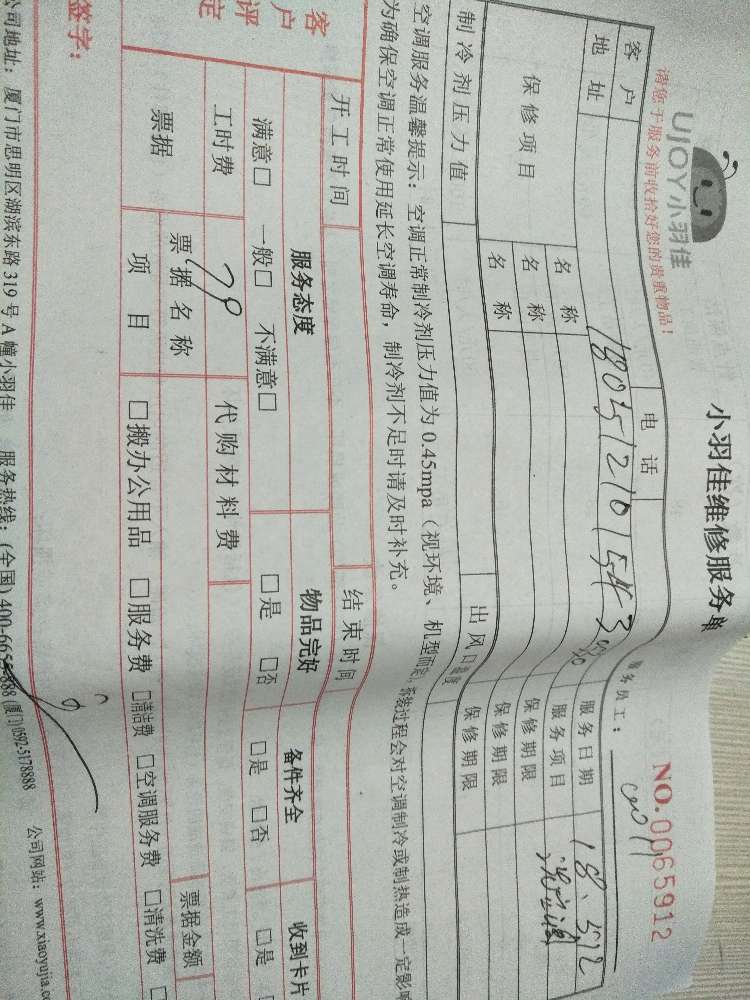 UJOY小羽佳
小羽佳维修服务
请您于服务前收拾好您的贵重物品!
NO.0065912
服务员工:
客户
地址
电话
服务日期
18.5.12
保修项目
服务项目
名称
保修期限
名称
保修期限
名称
保修期限
制冷剂压力值
出风口温度
空调服务温馨提示:空调正常制冷剂压力值为0.45mpa(视环境、机型而定),拆装过程会对空调制冷或制热造成一定影响
为确保空调正常使用延长空调寿命,制冷剂不足时请及时补充。
开工时间
结束时间
客户评定
服务态度
物品完好
备件齐全
收到卡片
满意□ 一般□ 不满意□
□是 □否
□是 □否
□是
工时费
70
代购材料费
票据
票据名称
票据金额
项目
□搬办公用品 □服务费 □清洁费 □空调服务费 □清洗费
签字:
公司地址:厦门市思明区湖滨东路319号A幢小羽佳 服务热线:(全国)400-6655-888 (厦门)0592-5178888 公司网站:www.xiaoyujia.co